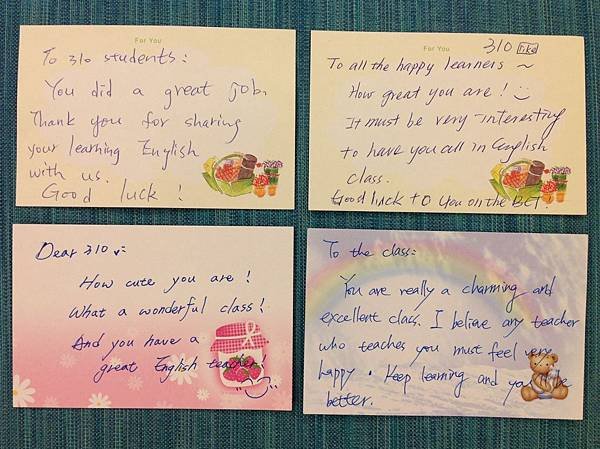 For You
To 310 students:
You did a great job.
Thank you for sharing
your learning English
with us.
Good luck!
For You
310 like
To all the happy learners ~
How great you are!
It must be very interesting
to have you all in English
class.
Good luck to you on the BCT.
Dear 310:
How cute you are!
What a wonderful class!
And you have a
great English teacher!
To the class:
You are really a charming and
excellent class. I believe any teacher
who teaches you must feel very
happy. Keep learning and you be
better.